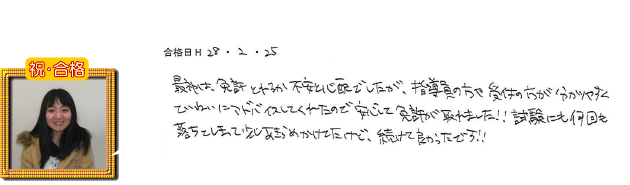 合格日 H 28 ・ 2 ・ 25
祝・合格
最初は、免許とれるか不安と心配でしたが、指導員の方や受付の方が分かりやすく
ていねいにアドバイスしてくれたので安心して免許が取れました!! 試験にも何回も
落ちてしまって少しあきらめかけてたけど、続けて良かったです!!